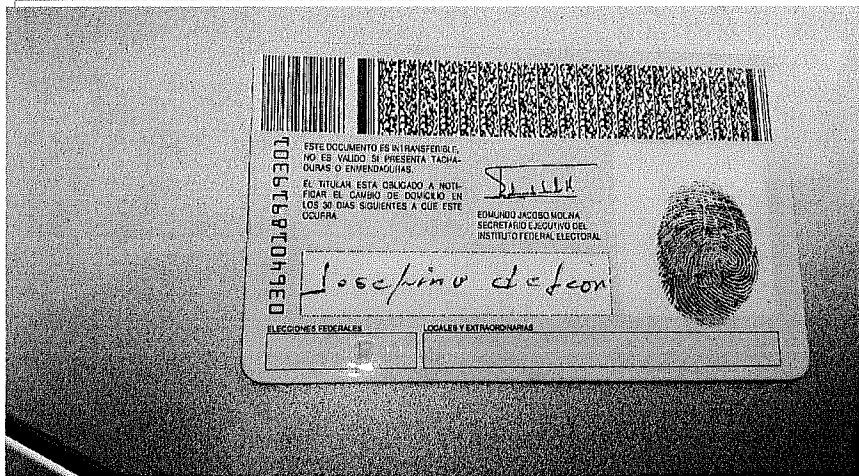 ESTE DOCUMENTO ES INTRANSFERIBLE,
NO ES VALIDO SI PRESENTA TACHA-
DURAS O ENMENDADURAS.
EL TITULAR ESTA OBLIGADO A NOTI-
FICAR EL CAMBIO DE DOMICILIO EN
LOS 30 DIAS SIGUIENTES A QUE ESTE
OCURRA
EDMUNDO JACOBO MOLINA
SECRETARIO EJECUTIVO DEL
INSTITUTO FEDERAL ELECTORAL
Josefino deleon
ELECCIONES FEDERALES
LOCALES Y EXTRAORDINARIAS